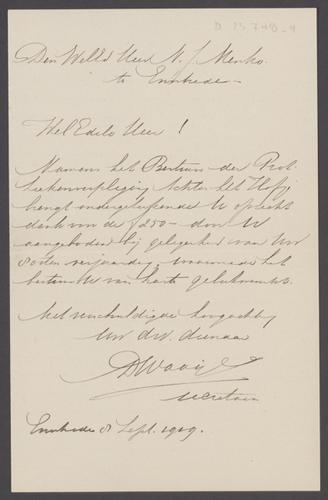 D 13748-4
Den WelEd Heer N. J. Menko.
te Enschede
WelEdele Heer!
Namens het Bestuur der Prot.
ziekenverpleging Achter het Hofje
brengt ondergeteekende U oprecht
dank voor de ƒ 250- door U
aangeboden bij gelegenheid van Uw
80sten verjaardag, waarmede het
bestuur U van harte gelukwenscht.
Met verschuldigde hoogachting
Uw dw. dienaar
secretaris
Enschede 8 Sept. 1919.